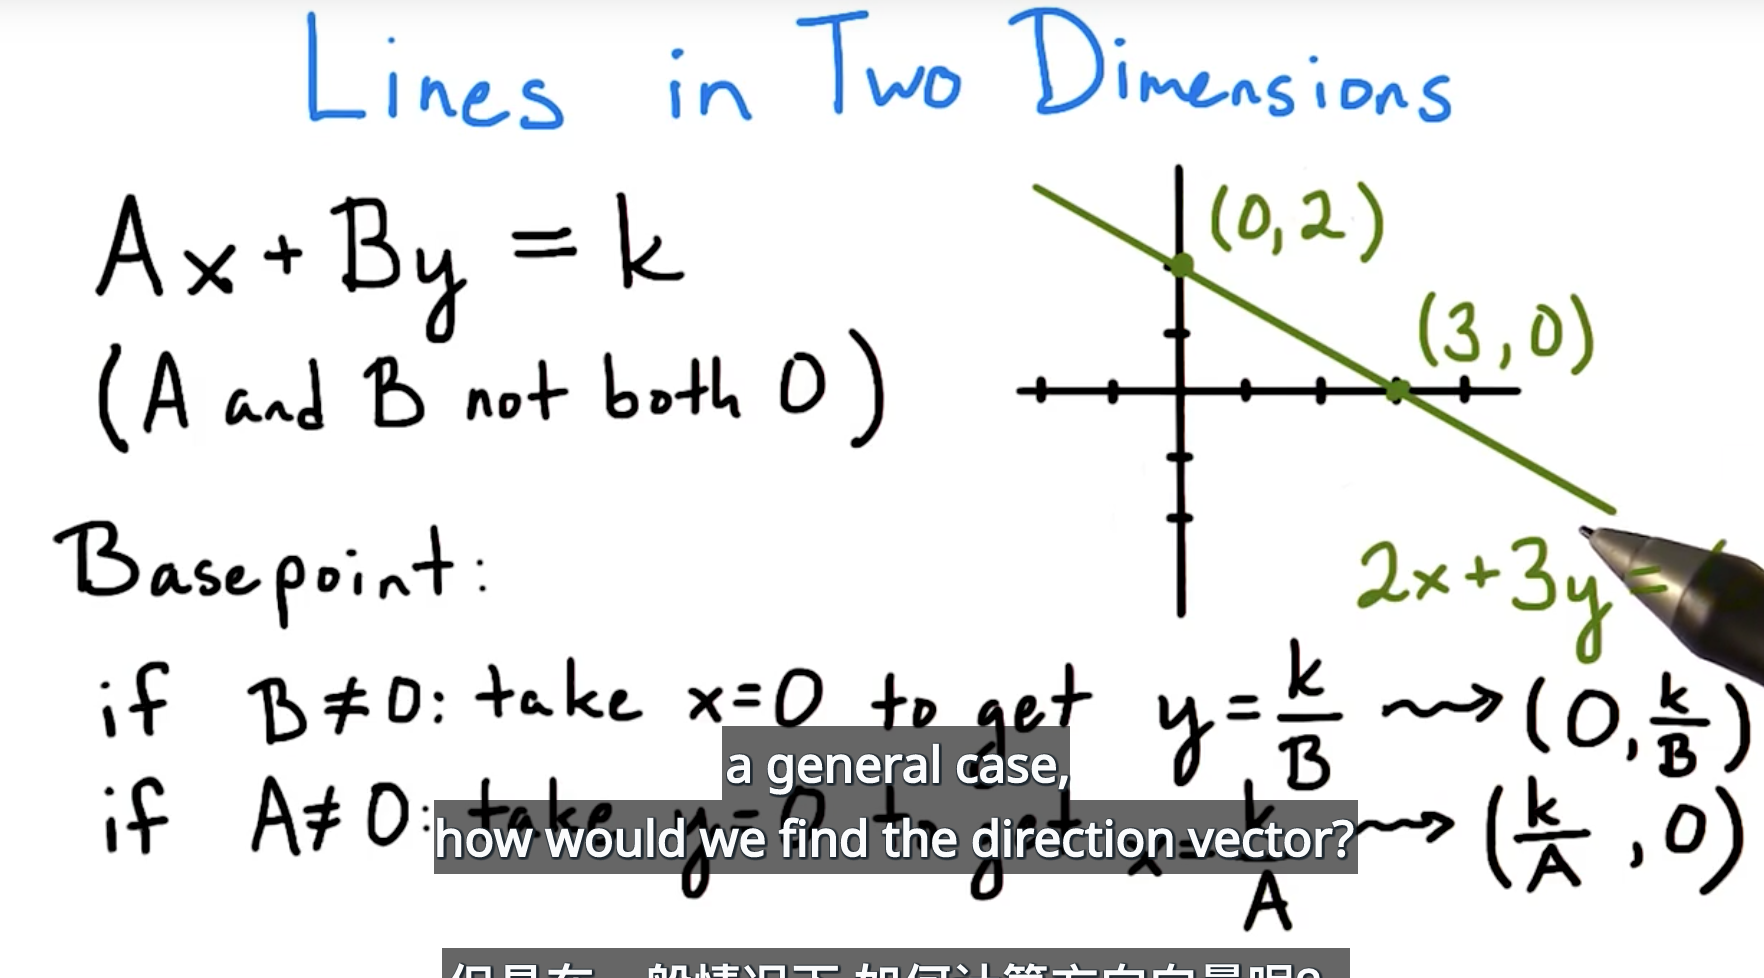 Lines in Two Dimensions
Ax + By = k
(A and B not both 0)
(0,2)
(3,0)
2x+3y=
Basepoint:
if B≠0: take x=0 to get y=k/B ⇝ (0, k/B)
if A≠0: take y=0 to get x=k/A ⇝ (k/A, 0)
a general case,
how would we find the direction vector?
但是在一般情况下 如何计算方向向量呢?